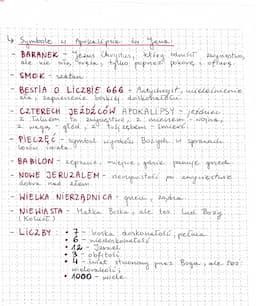 ↳ Symbole w Apokalipsie św. Jana:
- BARANEK - Jezus Chrystus, który odniósł zwycięstwo,
ale nie siłą, tylko poprzez pokorę i ofiarę.
- SMOK - szatan
- BESTIA O LICZBIE 666 - Antychryst, ucieleśnienie
zła, zaprzeczenie boskiej doskonałości
- CZTERECH JEŹDŹCÓW APOKALIPSY - jeździec
z łukiem to zwycięstwo, z mieczem - wojna,
z wagą - głód, z śmierć.
- PIECZĘĆ - symbol wyroków Bożych w sprawach
losów świata
- BABILON - zepsucie, miejsce, gdzie panuje grzech
- NOWE JERUZALEM - po zwycięstwie
dobra nad złem
- WIELKA NIERZĄDNICA - grzech, żądza
- NIEWIASTA - Matka Boska, ale też lud Boży
(Kościół)
- LICZBY: • 7 - boska doskonałość, pełnia
• 6 - niedoskonałość
• 12 - Izrael
• 3 - obfitość
• 4 - świat stworzony przez Boga, ale też
• 1000 - wiele